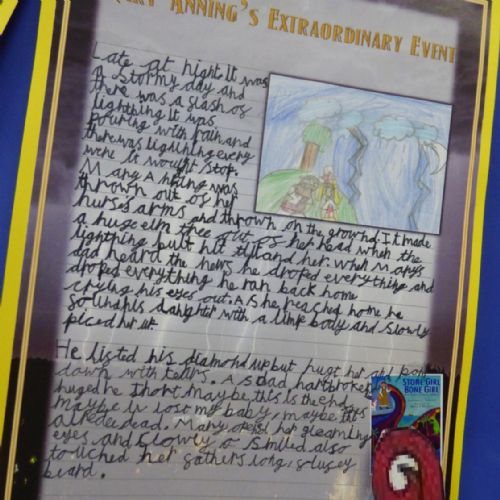 ARY ANNING'S EXTRAORDINARY EVENT
Late at night It was
A Stormy day and
there was a slash of
lightning It was
pouring with rain and
there was lightning every
were it wought stop.
Mary Anning was
thrown out of her
nurse's arms and thrown on the ground. It made
a huge elm tree out of her head when the
lightning bult hit it and her. When Marys
dad heard the news he droped everything and
droped everything he ran back home
crying his eyes out. As he reached home he
so his daughter with a limp body and slowly
piced her up.
He listed his diamond up but hugt her and
down with tears. As dad hartbroken
huged he thort Maybe this is the end,
Maybe iv lost my baby, maybe
alredee dead. Mary her gleaming
eyes and slowly smiled also
touched her fathers long,
beard.
STONE GIRL
BONE GIRL